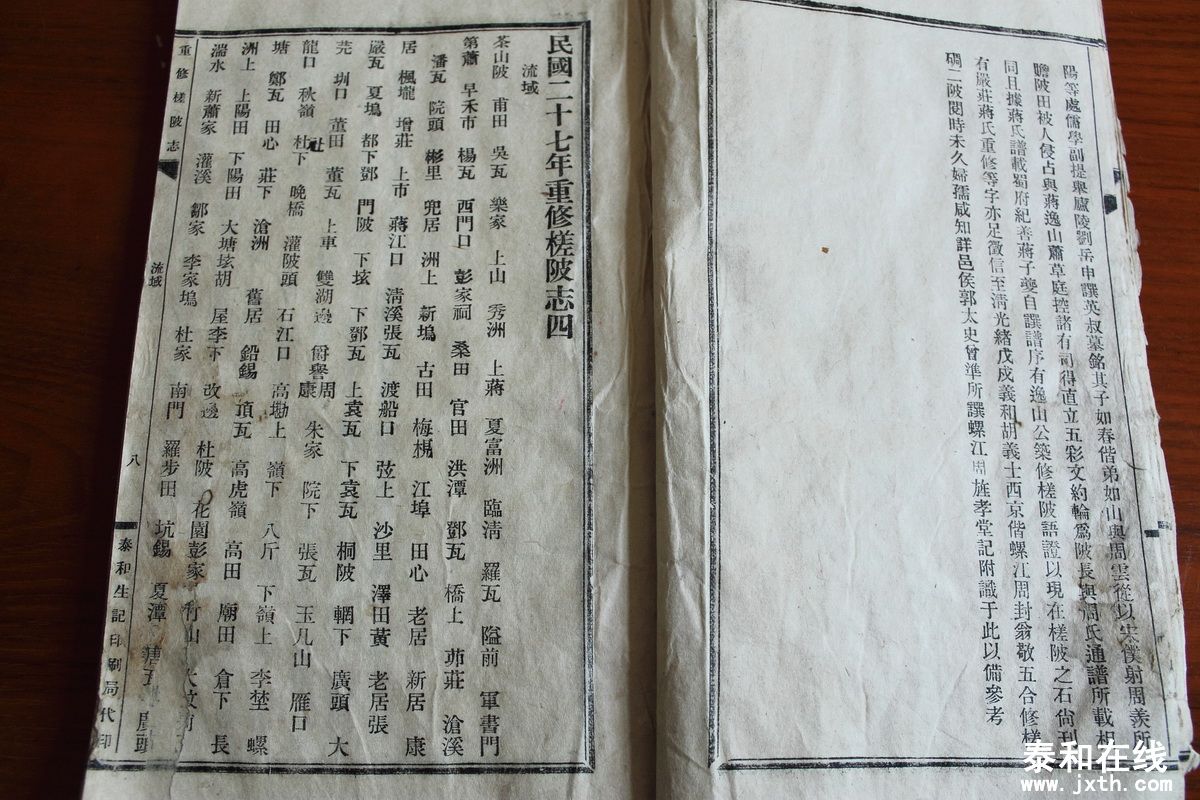 陽等處儒學副提舉廬陵劉岳申譔英叔墓銘其子如春偕弟如山與周雲從以宋僕射周羨所
贍陂田被人侵占與蔣逸山蕭草庭控諸有司得直立五彩文約輪爲陂長與周氏通譜所載相
同且據蔣氏譜載蜀府紀善蔣子夔自譔譜序有逸山公築修槎陂語證以現在槎陂之石尙刊
有嚴莊蔣氏重修等字亦足徵信至淸光緒戊戍義和胡義士西京偕螺江周封翁敬五合修槎
碉二陂閱時未久婦孺咸知詳邑侯郭太史曾準所譔螺江周旌孝堂記附識于此以備參考
民國二十七年重修槎陂志四
流域
茶山陂 甫田 吳瓦 樂家 上山 秀洲 上蔣 夏富洲 臨淸 羅瓦 隘前 軍書門
第蕭 早禾市 楊瓦 西門口 彭家祠 桑田 官田 洪潭 鄧瓦 橋上 茆莊 滄溪
潘瓦 院頭 彬里 兜居 洲上 新塢 古田 梅梘 江埠 田心 老居 新居 康
居 楓壠 增莊 上市 蔣江口 淸溪張瓦 渡船口 弦上 沙里 澤田黃 老居張
嚴瓦 夏塢 都下鄧 門陂 下垓 下鄧瓦 上袁瓦 下袁瓦 桐陂 輞下 廣頭 大
芫 圳口 董田 董瓦 上車 雙湖邊 爵譽周 康 朱家 院下 張瓦 玉凡山 雁口
龍口 秋嶺 杜下 晚橋 灌陂頭 石江口 高坳上 嶺下 八斤 下嶺上 李埜 螺
塘 鄭瓦 田心 莊下 滄洲 舊居 鉛錫 頂瓦 高虎嶺 高田 廟田 倉下 長
洲上 上陽田 下陽田 大塘垓胡 屋李下 改邊 杜陂 花園彭家 竹山
湍水 新蕭家 灌溪 鄒家 李家塢 杜家 南門 羅步田 坑錫 夏潭
重修槎陂志
流域
八
泰和生記印刷局代印
泰和在线
www.jxth.com